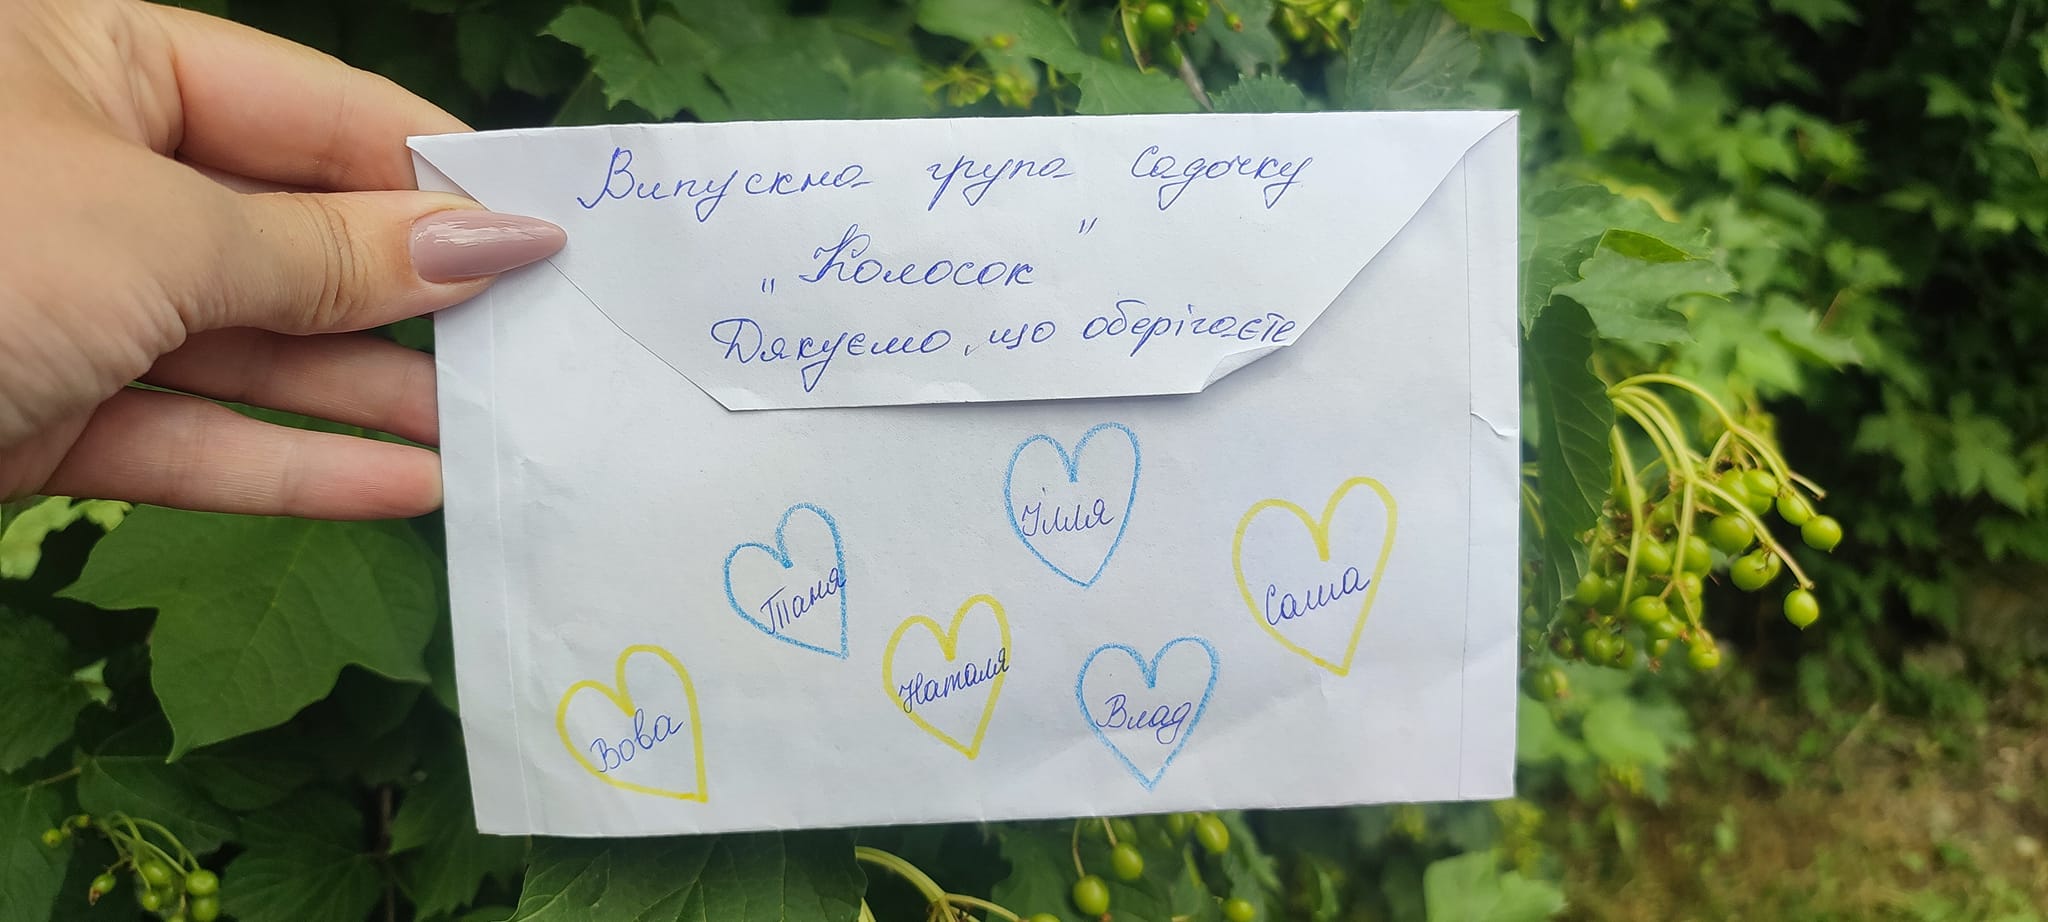 Випускна група садочку
"Колосок"
Дякуємо, що оберігаєте
Ілля
Таня
Саша
Наталя
Вова
Влад